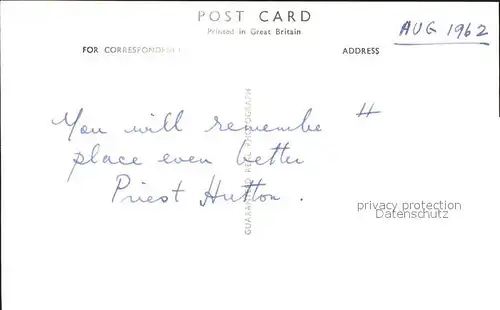 POST CARD
Printed in Great Britain
AUG 1962
FOR CORRESPONDENCE
ADDRESS
You will remembe #
place even better
Priest Hutton.
GUARANTEED REAL PHOTOGRAPH
privacy protection
Datenschutz